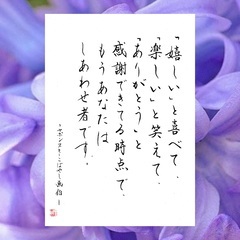 「嬉しい」と喜べて、
「楽しい」と笑えて、
「ありがとう」と
感謝できてる時点で、
もうあなたは
しあわせ者です。